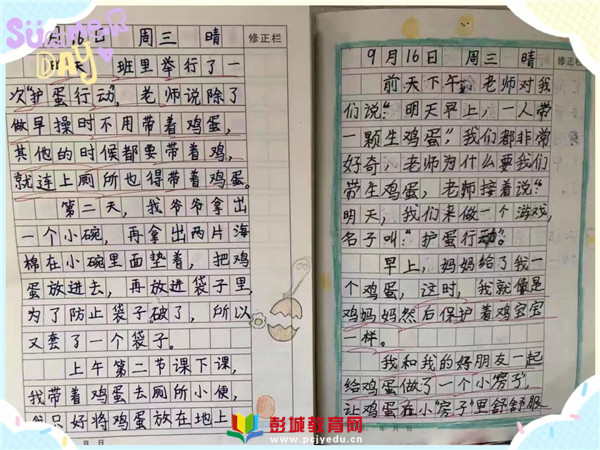 SUMMER DAY
月16日 周三 晴 修正栏
昨天，班里举行了一
次“护蛋行动”，老师说除了
做早操时不用带着鸡蛋，
其他的时候都要带着鸡，
就连上厕所也得带着鸡蛋。
第二天，我爷爷拿出
一个小碗，再拿出两片海
棉在小碗里面垫着，把鸡
蛋放进去，再放进袋子里，
为了防止袋子破了，所以
又套了一个袋子。
上午第二节课下课，
我带着鸡蛋去厕所小便，
我只好将鸡蛋放在地上
月 日
9月16日 周三 晴 修正栏
前天下午，老师对我
们说：“明天早上，一人带
一颗生鸡蛋”，我们都非常
好奇，老师为什么要我们
带生鸡蛋，老师接着说：“
明天，我们来做一个游戏，
名子叫：“护蛋行动”。
早上，妈妈给了我一
个鸡蛋，这时，我就像是
鸡妈妈然后保护着鸡宝宝
一样。
我和我的好朋友一起
给鸡蛋做了一个小“房子”，
让鸡蛋在小“房子”里舒舒服
年 月 日
彭城教育网
www.pcjyedu.cn